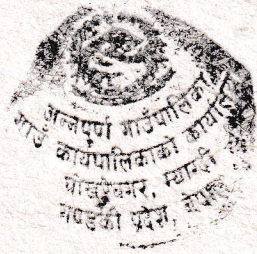 अन्नपूर्ण गाउँपालिका
गाउँ कार्यपालिकाको कार्यालय
पोखरेबगर, म्याग्दी
गण्डकी प्रदेश, नेपाल